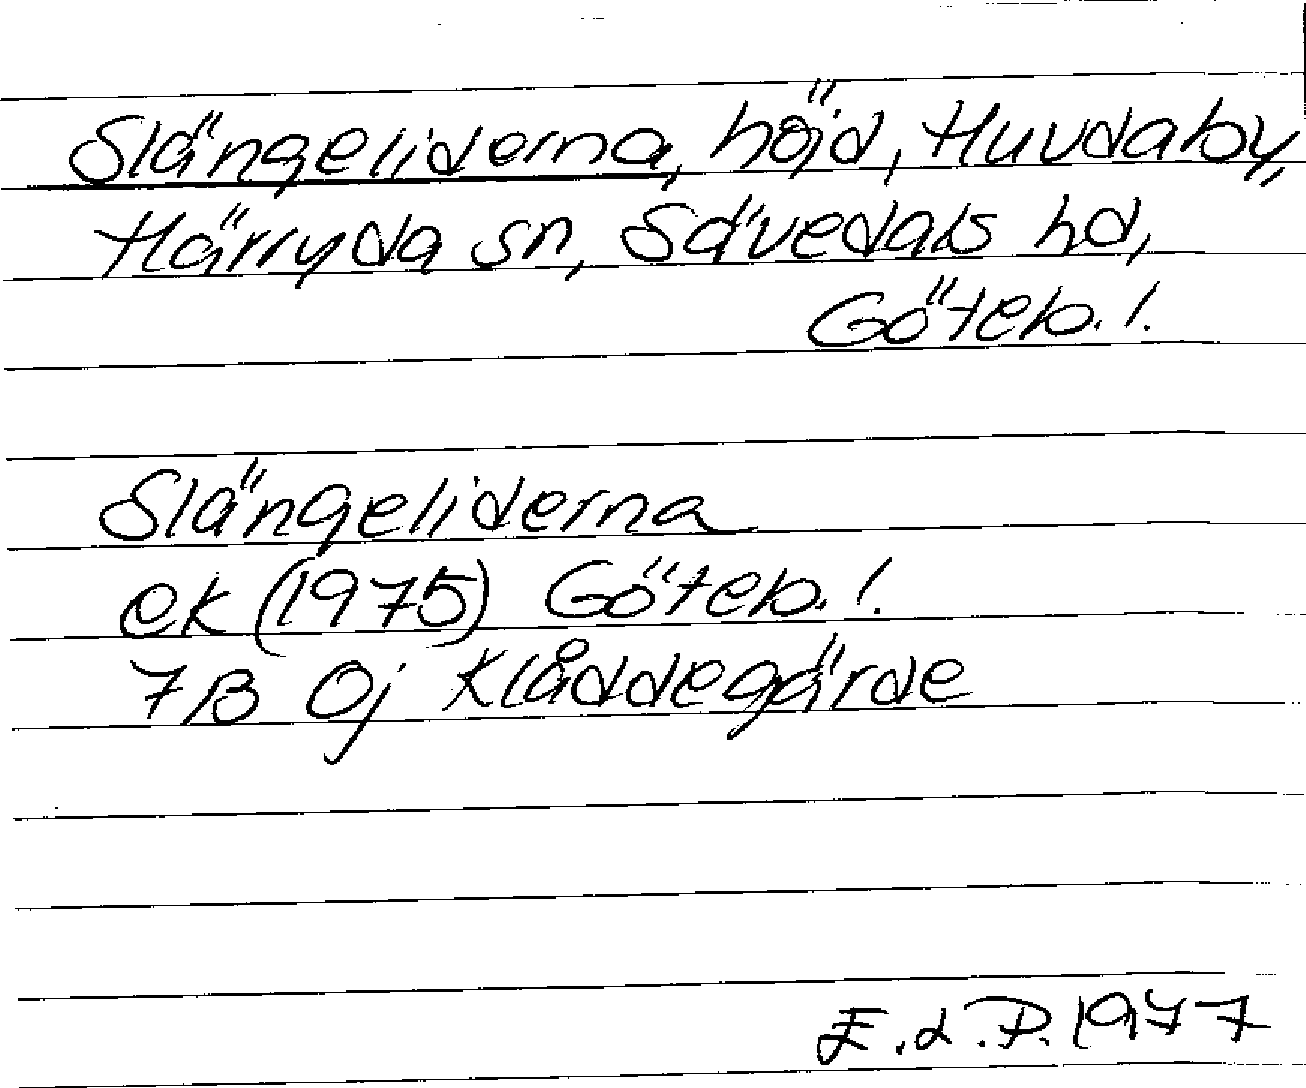 Slängeliderna, höjd, Huvdaby,
Härryda sn, Sävedals hd,
Göteb. l.
Slängeliderna
ek (1975) Göteb. l.
7B 0j Klåddegärde
E.d.P. 1977